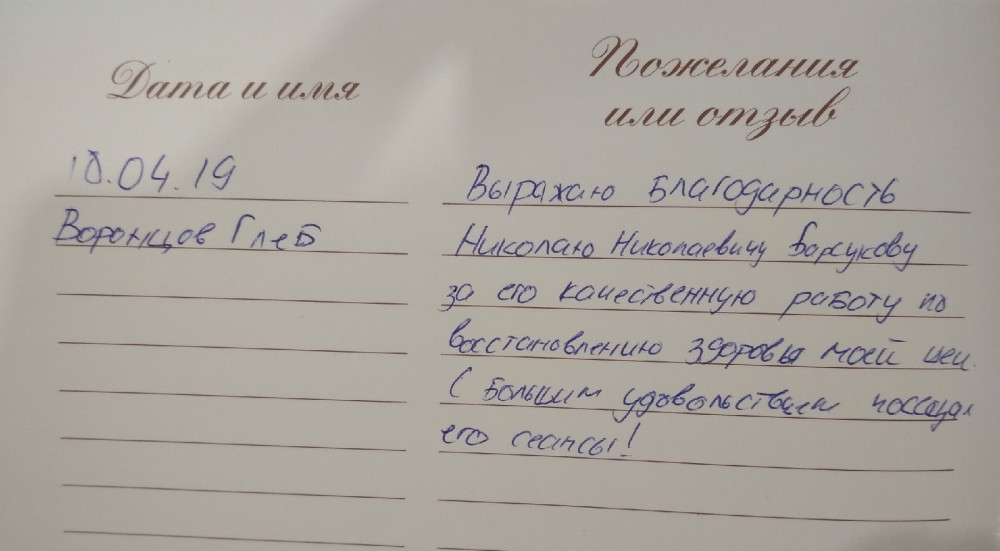 Дата и имя
Пожелания
или отзыв
10.04.19
Воронцов Глеб
Выражаю благодарность
Николаю Николаевичу Барсукову
за его качественную работу по
восстановлению здоровья моей шеи.
С большим удовольствием поссещал
его сеансы!